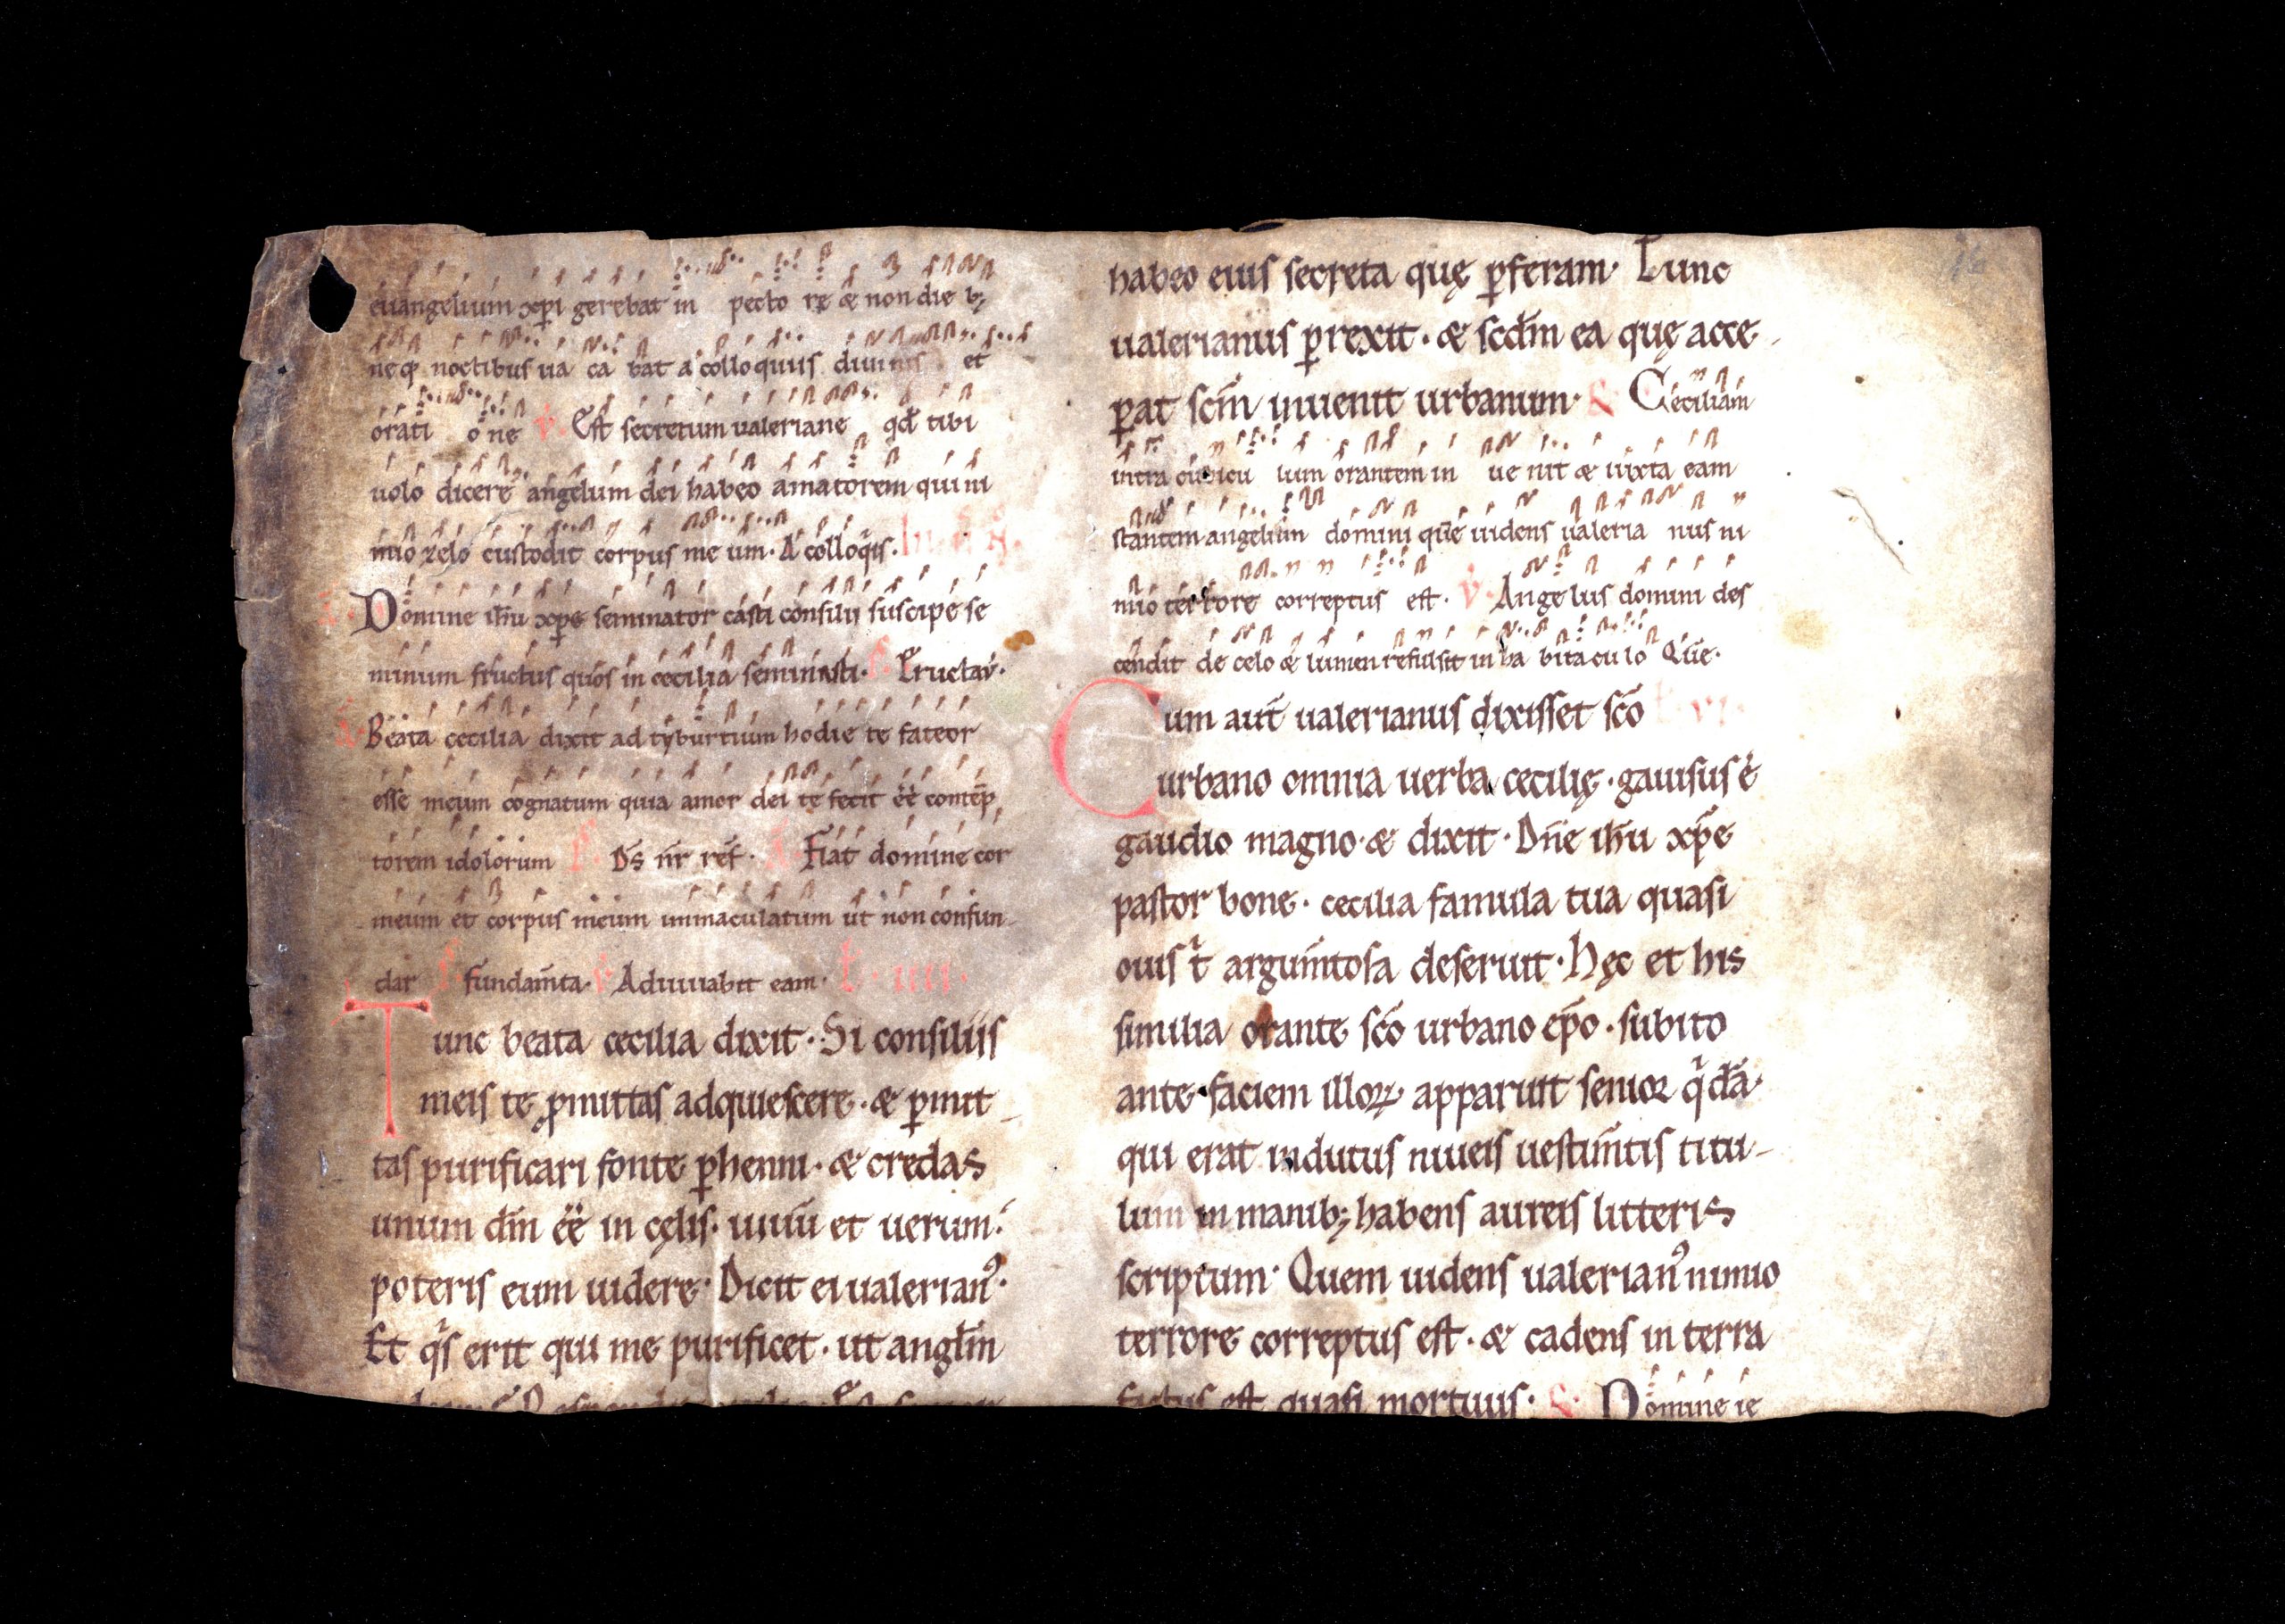 euangelium xp̄i gerebat in pecto re & non die b;
neq; noctibus ua ca bat a collo quiis diuinis et
orati o ne v. Est secretum ualeriane qd̄ tibi
uolo dicere angelum dei habeo amatorem qui ni
mio zelo custodit corpus me um· A colloq̄is.
Domine ih̄u xp̄e seminator casti consilii suscipe se
minum fructus quos in cecilia seminasti· Eructau̅·
Beata cecilia dixit ad tyburtium hodie te fateor
esse meum cognatum quia amor dei te fecit ee̅ contep̄
torem idolorum P. Ds̄ nr̄ ref̄· A Fiat domine cor
meum et corpus meum immaculatum ut non confun-
dar fundam̄ta· v Adiuuabit eam· L· iiii·
Tunc beata cecilia dixit· Si consiliis
meis te ꝓmittas adquiescere· & ꝑmit-
tas purificari fonte ꝑhenni· & credas
unum dm̄ ee̅ in cęlis· uiuū et uerum·
poteris eum uidere· Dicit ei ualerianꝰ·
Et qͥs erit qui me purificet· ut angl̄m
habeo eius secreta quę ꝑferam· Tunc
ualerianus ꝑrexit· & scd̄m ea quę acce-
ꝑat scm̄ inuenit urbanum· R Ceciliam
intra cubicu lum orantem in ue nit & iuxta eam
stantem angelum domini quē uidens ualeria nus ni
mio terrore correptus est· v. Ange lus domini des
cendit de celo & lumen refulsit in ha bitaculo Quē·
Cum aut̄ ualerianus dixisset scō L vi·
urbano omnia uerba cecilię· gauisus ē
gaudio magno· & dixit· Dn̄e ih̄u xp̄e
pastor bone· cecilia famula tua quasi
ouis t̄ argum̄tosa deseruit· Hęc et his
similia orante scō urbano ep̄o· subito
ante faciem illoꝝ apparuit senior qͥdā·
qui erat indutus niueis uestim̄tis titu-
lum in manib; habens aureis litteris
scriptum· Quem uidens ualerianꝰ nimio
terrore correptus est· & cadens in terra
factus est quasi mortuus· R Domine ie